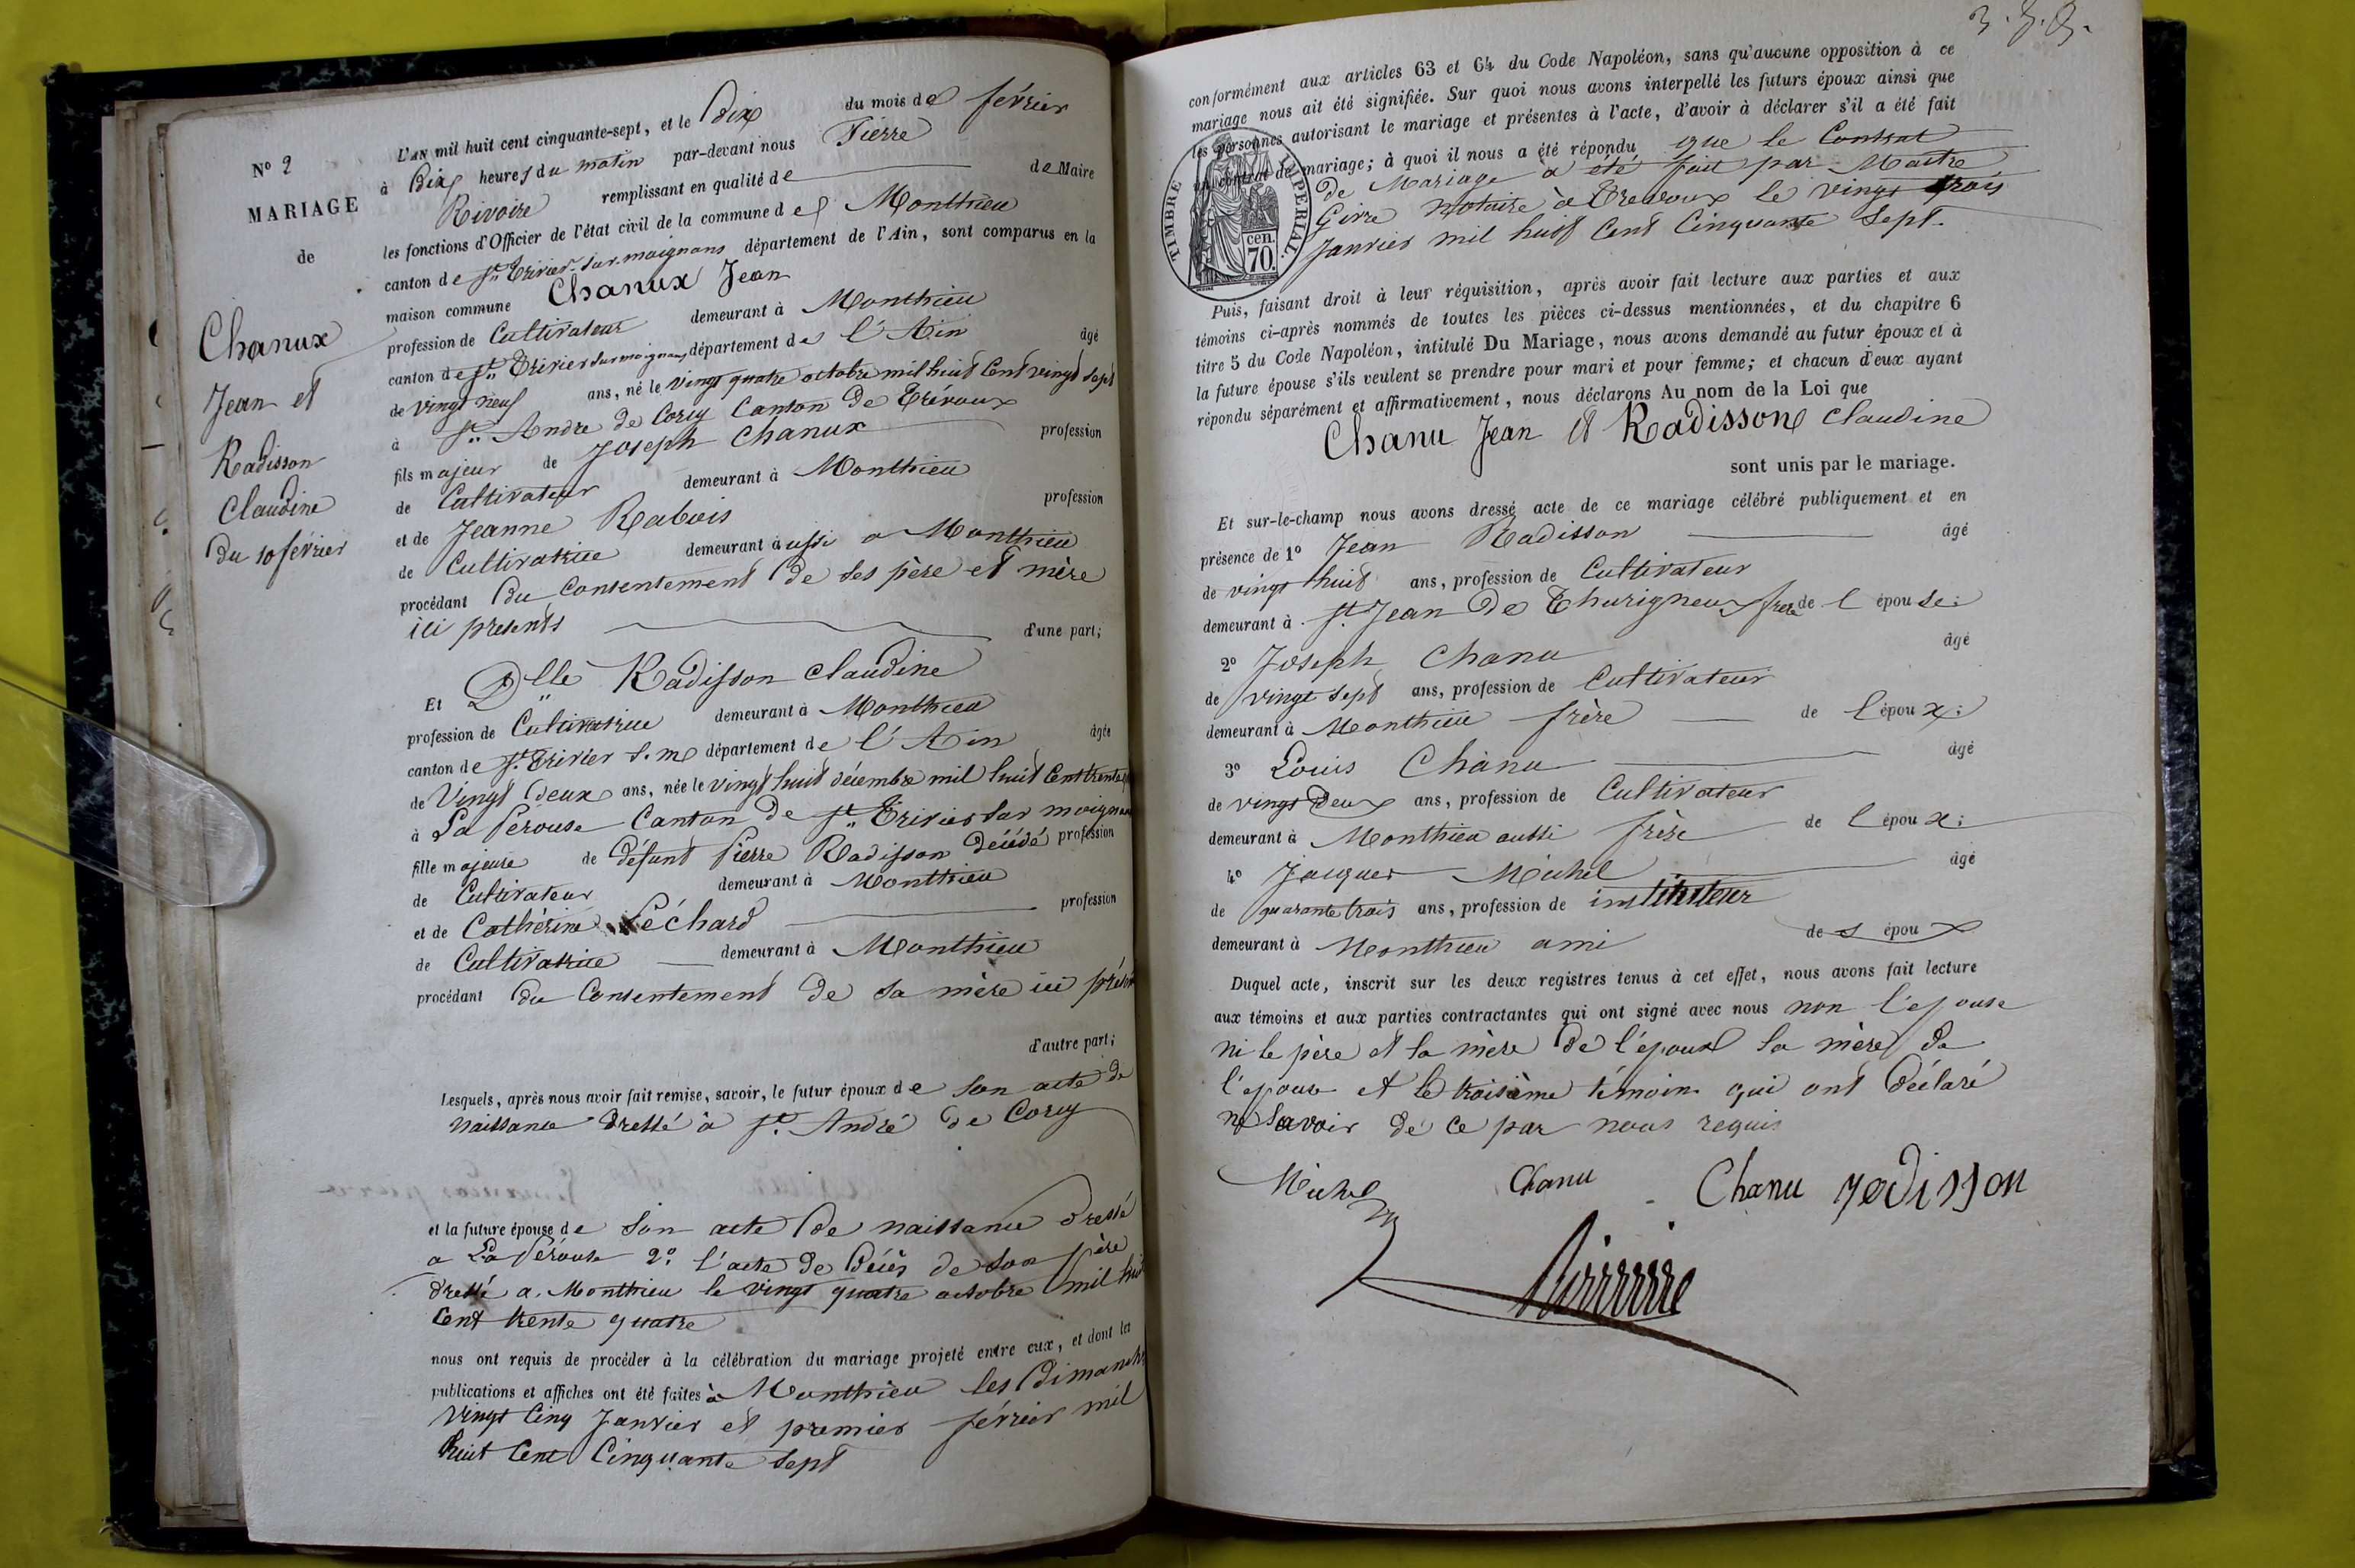 N° 2
MARIAGE
de
Chanux
Jean et
Radisson
Claudine
Du 10 février
L'AN mil huit cent cinquante-sept, et le Dix du mois de février
à Dix heures du matin par-devant nous Pierre
Rivoire remplissant en qualité de de Maire
les fonctions d'Officier de l'état civil de la commune de Monthieu
canton de St. Trivier-sur-moignans département de l'Ain, sont comparus en la
maison commune Chanux Jean
profession de Cultivateur demeurant à Monthieu
canton de St. Trivier sur moignans département de l'Ain âgé
de vingt neuf ans, né le vingt quatre octobre mil huit Cent vingt sept
à St. Andre de Corcy Canton de Trévoux
fils majeur de Joseph Chanux profession
de Cultivateur demeurant à Monthieu
et de Jeanne Rabuis profession
de Cultivatrice demeurant aussi a Monthieu
procédant Du Consentement De ses père et mère
ici présents d'une part;
Et Dlle Radisson claudine
profession de Cultivatrice demeurant à Monthieu
canton de St. Trivier s. m. département de l'Ain âgée
de Vingt Deux ans, née le vingt huit décembre mil huit Cent trente
à La Pérouse Canton de St. Trivier sur moignans
fille majeure de défunt Pierre Radisson Décédé profession
de Cultivateur demeurant à Monthieu
et de Cathérine Péchard profession
de Cultivatrice demeurant à Monthieu
procédant du Consentement De sa mère ici présente
d'autre part;
Lesquels, après nous avoir fait remise, savoir, le futur époux de son acte de
naissance dressé à St. André de Corcy
et la future épouse de son acte De naissance dressé
a La Pérouse 2° l'acte De Décès de son père
dressé a Monthieu le vingt quatre octobre mil huit
Cent trente quatre
nous ont requis de procéder à la célébration du mariage projeté entre eux, et dont les
publications et affiches ont été faites à Monthieu les Dimanches
vingt Cinq Janvier et premier février mil
huit Cent Cinquante sept
conformément aux articles 63 et 64 du Code Napoléon, sans qu'aucune opposition à ce
mariage nous ait été signifiée. Sur quoi nous avons interpellé les futurs époux ainsi que
les personnes autorisant le mariage et présentes à l'acte, d'avoir à déclarer s'il a été fait
un contrat de mariage; à quoi il nous a été répondu que le Contrat
de Mariage a été fait par Maitre
Girre notaire à Trevoux le vingt trois
Janvier mil huit Cent Cinquante Sept.
TIMBRE IMPERIAL
70 cen.
Puis, faisant droit à leur réquisition, après avoir fait lecture aux parties et aux
témoins ci-après nommés de toutes les pièces ci-dessus mentionnées, et du chapitre 6
titre 5 du Code Napoléon, intitulé Du Mariage, nous avons demandé au futur époux et à
la future épouse s'ils veulent se prendre pour mari et pour femme; et chacun d'eux ayant
répondu séparément et affirmativement, nous déclarons Au nom de la Loi que
Chanu Jean et Radisson claudine
sont unis par le mariage.
Et sur-le-champ nous avons dressé acte de ce mariage célébré publiquement et en
présence de 1° Jean Radisson âgé
de vingt huit ans, profession de Cultivateur
demeurant à St. Jean De Thurigneux frère de l épouse;
2° Joseph Chanu âgé
de vingt sept ans, profession de Cultivateur
demeurant à Monthieu frère de l époux;
3° Louis Chanu âgé
de vingt Deux ans, profession de Cultivateur
demeurant à Monthieu aussi frère de l époux;
4° Jacques Michel âgé
de quarante trois ans, profession de instituteur
demeurant à Monthieu ami des époux
Duquel acte, inscrit sur les deux registres tenus à cet effet, nous avons fait lecture
aux témoins et aux parties contractantes qui ont signé avec nous non l'epouse
ni le père et la mère De l'époux la mère de
l'epouse et le troisième témoin qui ont Déclaré
ne savoir de ce par nous requis
Michel Chanu Chanu radisson
Rivoire